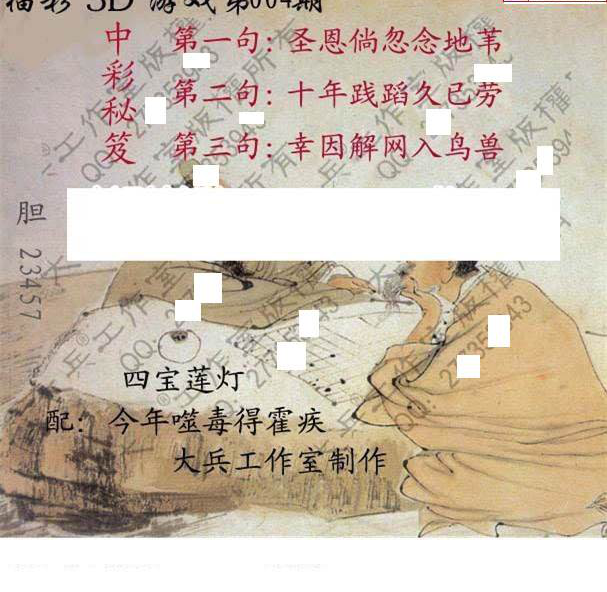 福彩 3D 游戏 第004期
中彩秘笈
第一句：圣恩倘忽念地苇
第二句：十年践蹈久已劳
第三句：幸因解网入鸟兽
胆 23457
四宝莲灯
配：今年噬毒得霍疾
大兵工作室制作